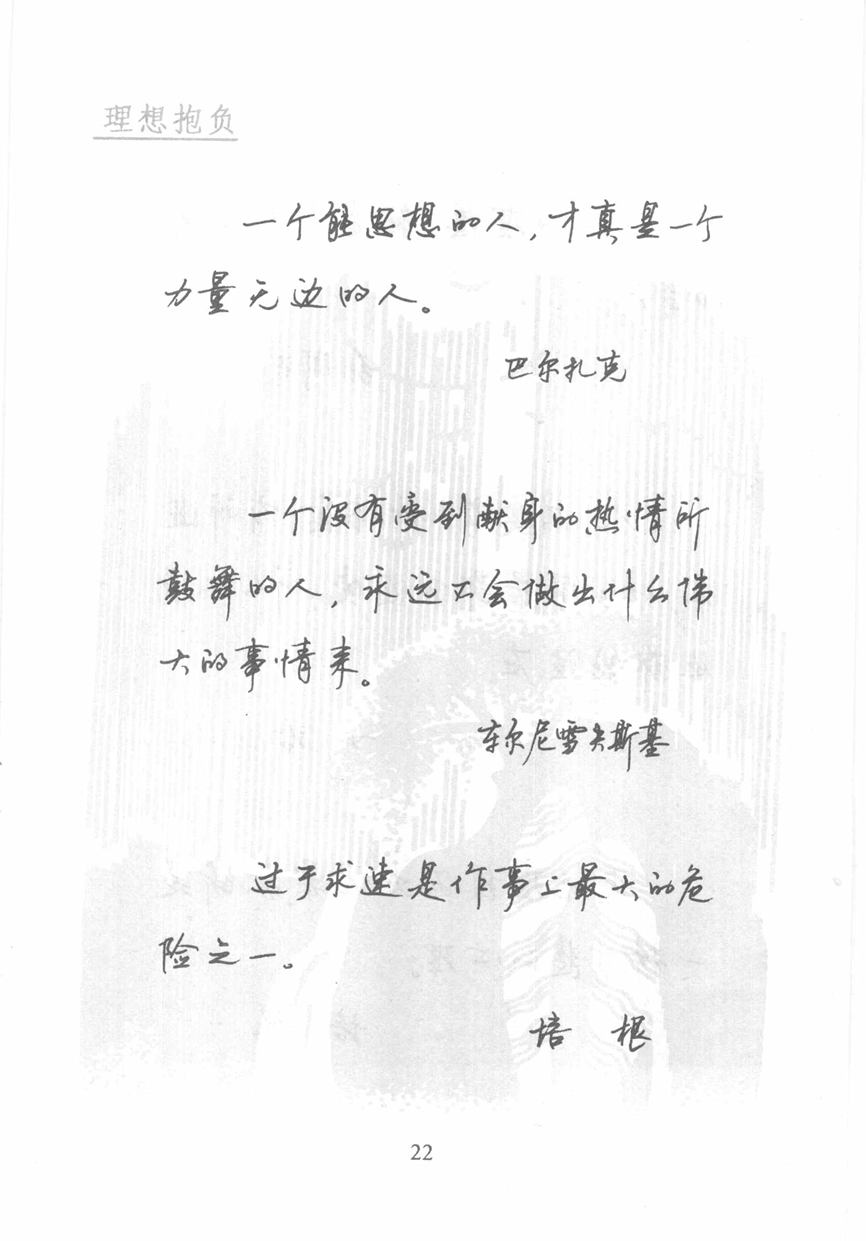 理想抱负
一个能思想的人，才真是一个
力量无边的人。
巴尔扎克
一个没有受到献身的热情所
鼓舞的人，永远不会做出什么伟
大的事情来。
车尔尼雪夫斯基
过于求速是作事上最大的危
险之一。
培 根
22